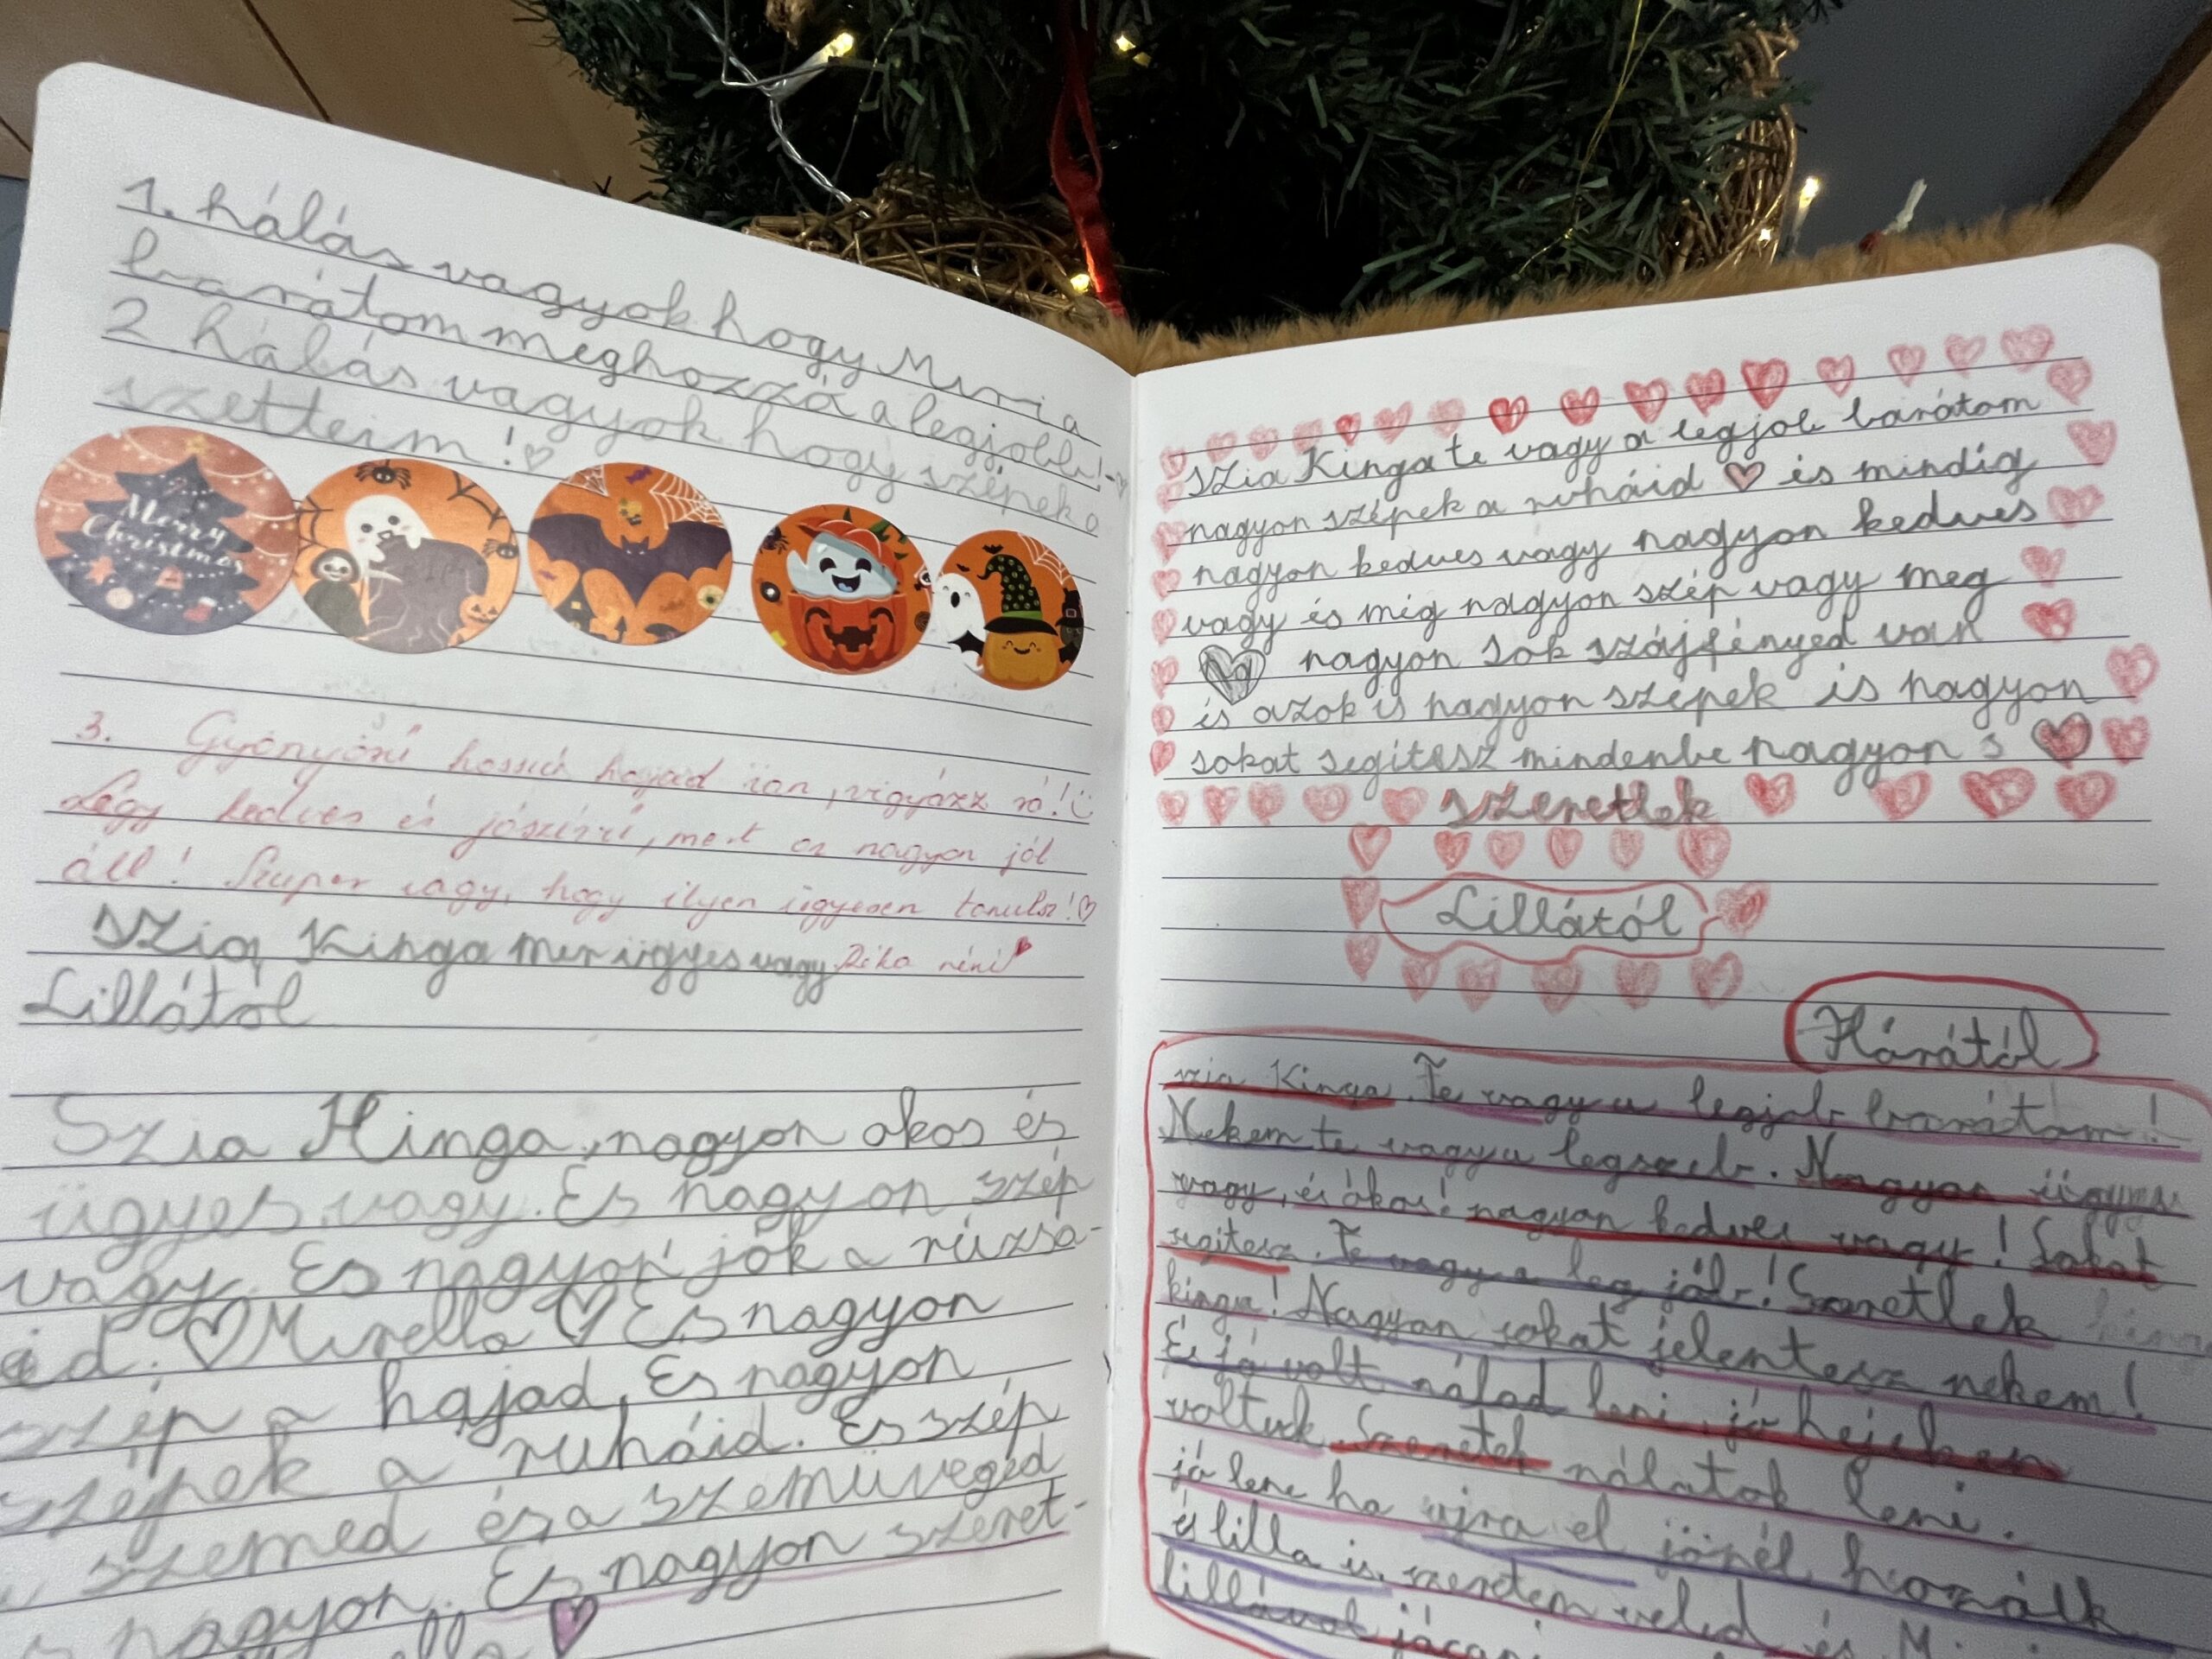 1. hálás vagyok hogy Miria
barátom meghozzá a legjobb!
2 hálás vagyok hogy szépek a
szetteim!
Merry
Christmas
3. Gyönyörű hosszú hajad van, vigyázz rá!
Légy kedves és jószívű, mert ez nagyon jól
áll! Szuper vagy, hogy ilyen ügyesen tanulsz!
Szia Kinga mer ügyes vagy Réka néni
Lillától
Szia Kinga, nagyon okos és
ügyes vagy. És nagyon szép
vagy. Es nagyon jók a rúzsa-
id. Mirella Es nagyon
szép a hajad. Es nagyon
szépek a ruháid. Es szép
a szemed és a szemüveged
nagyon. Es nagyon szeret-
szia Kinga te vagy a legjob barátom
nagyon szépek a ruháid és mindig
nagyon kedves vagy nagyon kedves
vagy és míg nagyon szép vagy meg
nagyon sok szájfényed van
és azok is nagyon szépek is nagyon
sokat segitesz mindenbe nagyon s
szeretlek
Lillától
Hárától
szia Kinga. Te vagy a legjob barátom!
Nekem te vagy a legszeb. Nagyon ügyes
vagy, és ókos! nagyon kedves vagy! Sokat
segitesz. Te vagy a leg jób! Szeretlek
kinga! Nagyon sokat jelentesz nekem!
És jó volt nálad leni, jó hejeken
voltuk. Szeretek nálatok leni.
jó lene ha ujra el jönél hozzálk
és lilla is. szeretem veled és
lillával